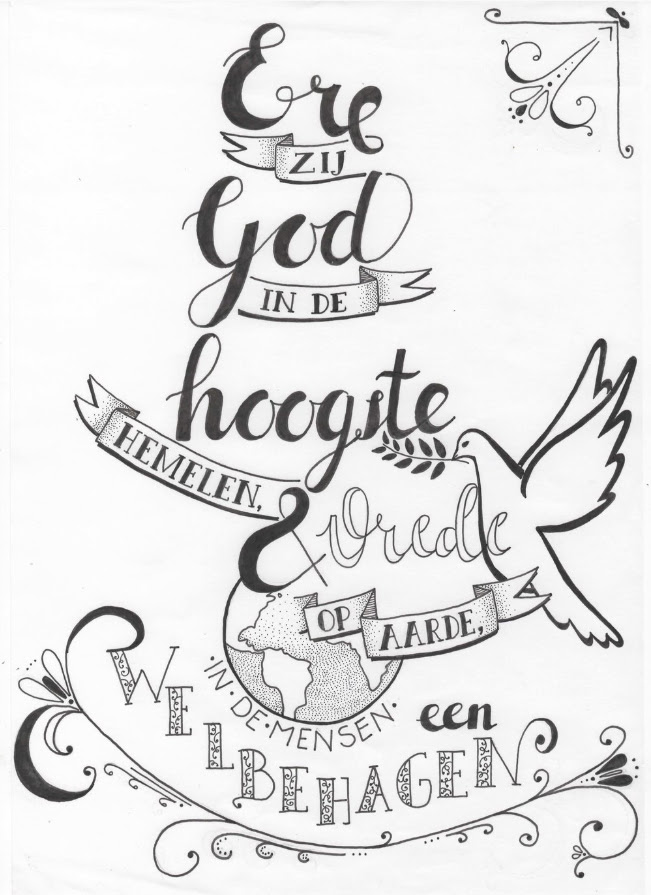 Ere
ZIJ
God
IN DE
hoogste
HEMELEN,
& vrede
OP AARDE,
IN·DE·MENSEN·
een
WELBEHAGEN